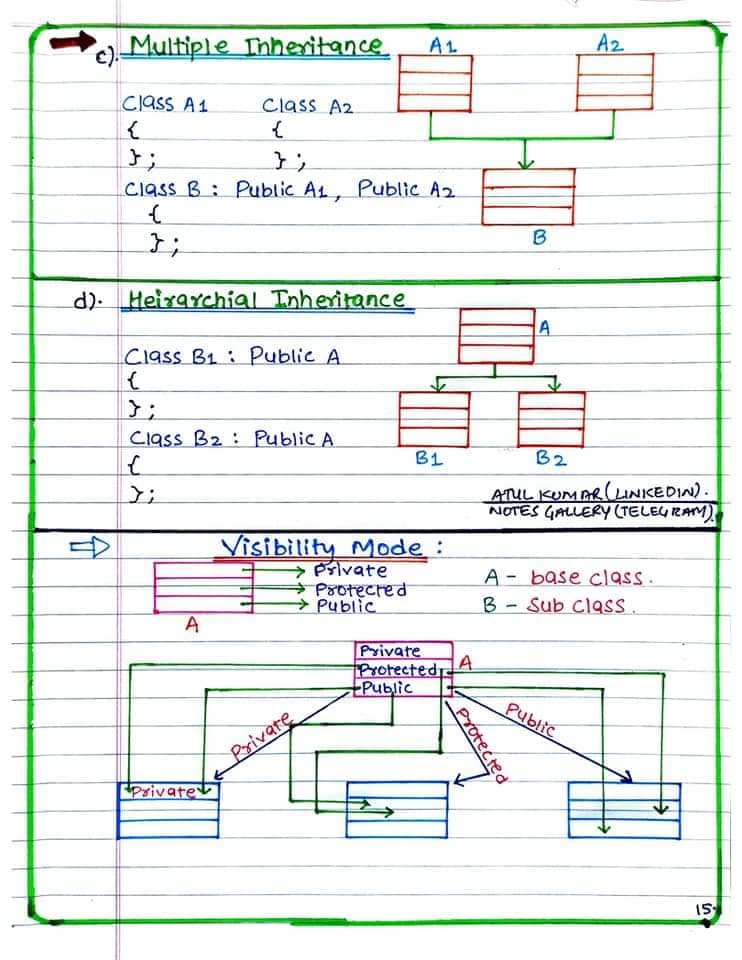 c). Multiple Inheritance
A1 A2
Class A1 Class A2
{ {
}; };
Class B : Public A1, Public A2
{
};
B
d). Heirarchial Inheritance
A
Class B1 : Public A
{
};
Class B2 : Public A
B1 B2
{
};
ATUL KUMAR (LINKEDIN).
NOTES GALLERY (TELEGRAM).
Visibility Mode :
Private
Protected
Public
A
A - base class.
B - Sub class.
Private
Protected
Public
A
Private
Protected
Public
Private
15.